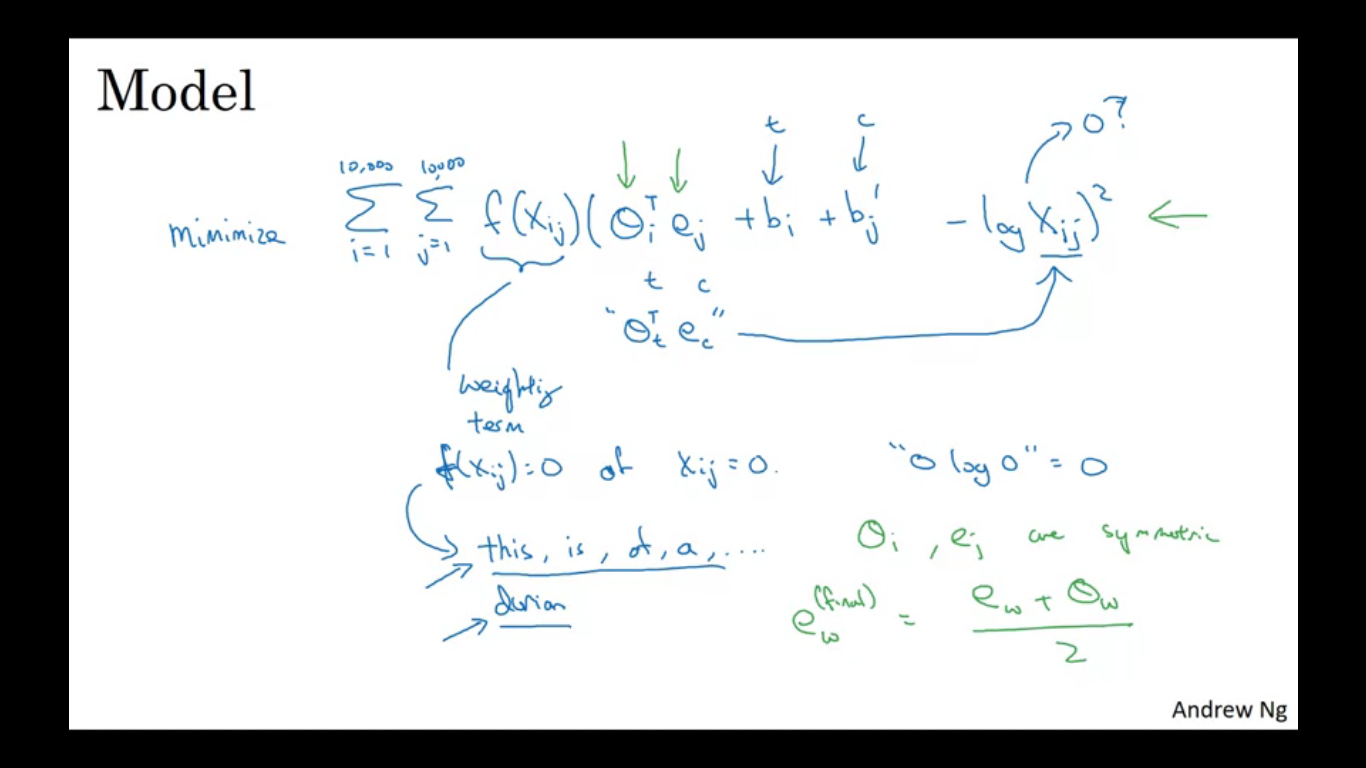 Model
t c 0?
minimize Σ_{i=1}^{10,000} Σ_{j=1}^{10,000} f(X_{ij}) (θ_i^T e_j + b_i + b_j' - log X_{ij})^2
t c
"θ_t^T e_c"
weighting
term
f(X_{ij}) = 0 if X_{ij} = 0. "0 log 0" = 0
this, is, of, a, .... θ_i, e_j are symmetric
durian
e_w^{(final)} = \frac{e_w + θ_w}{2}
Andrew Ng